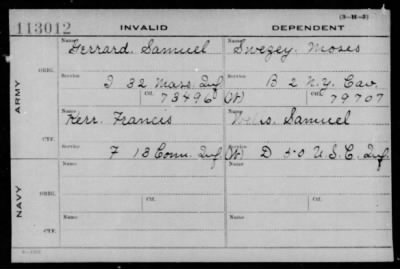 (3-H-3)
113012 INVALID DEPENDENT
ARMY
ORIG.
Name Gerrard, Samuel Name Swezey, Moses
Service I 32 Mass. Inf. Service B 2 N.Y. Cav.
Ctf. 73496 (W) Ctf. 79707
CTF.
Name Kerr, Francis Name Samuel
Service F 13 Conn. Inf. (W) Service D 50 U.S.C. Inf.
NAVY
ORIG.
Name Name
Service Ctf. Service Ctf.
CTF.
Name Name
Service Service